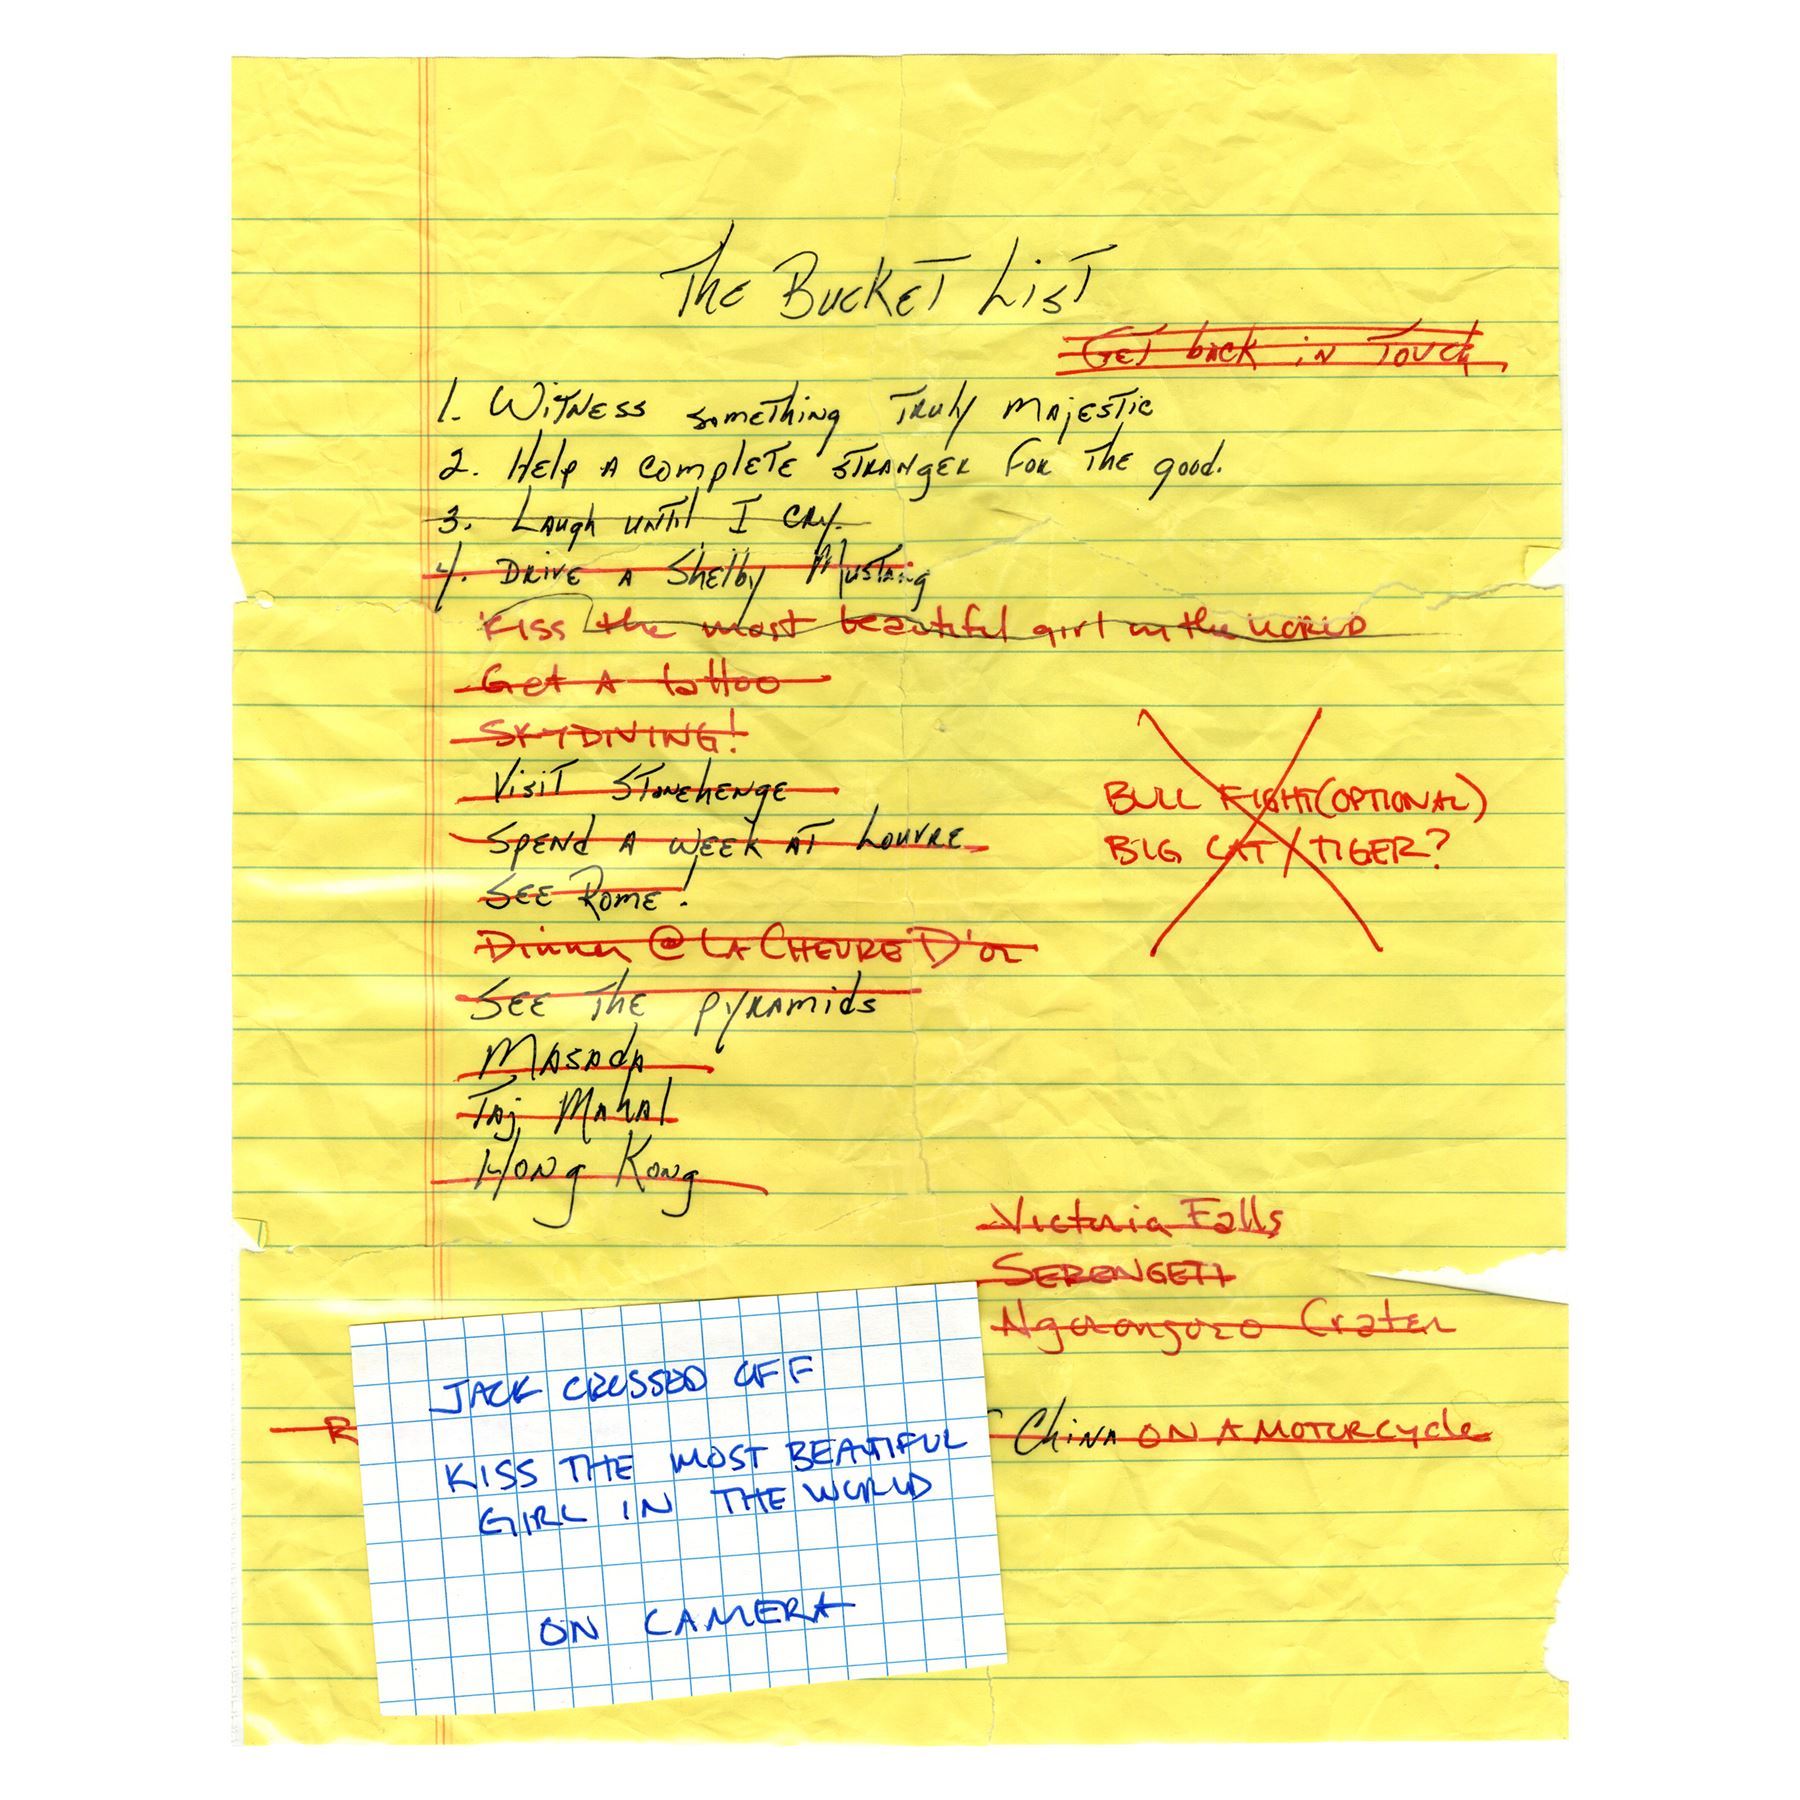 The Bucket List
Get back in Touch
1. Witness something Truly Majestic
2. Help a complete stranger for the good.
3. Laugh until I cry.
4. Drive a Shelby Mustang
Kiss the most beautiful girl in the world
Get A tattoo
SKYDIVING!
Visit Stonehenge
BULL FIGHT (OPTIONAL)
Spend a week at Louvre
BIG CAT/TIGER?
See Rome!
Dinner @ LA CHEVRE D'OR
See The Pyramids
Masada
Taj Mahal
Hong Kong
Victoria Falls
SERENGETI
Ngorongoro Crater
R China ON A MOTORCYCLE
JACK CROSSED OFF
KISS THE MOST BEAUTIFUL
GIRL IN THE WORLD
ON CAMERA